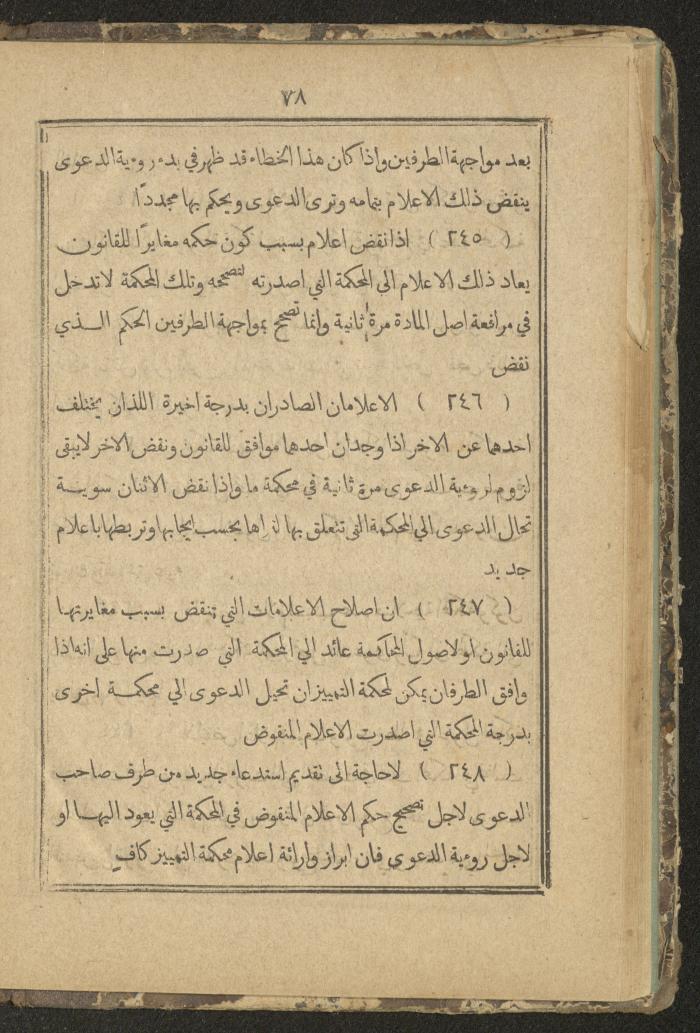 ٧٨
بعد مواجهة الطرفين واذا كان هذا الخطاء قد ظهر في بدء روءية الدعوى
ينقض ذلك الاعلام بتمامه وترى الدعوى ويحكم بها مجددًا
( ٢٤٥ ) اذا نقض اعلام بسبب كون حكمه مغايرًا للقانون
يعاد ذلك الاعلام الى المحكمة التي اصدرته لتصححه وتلك المحكمة لا تدخل
في مرافعة اصل المادة مرة ثانية وانما تصحح بمواجهة الطرفين الحكم الـذي
نقض
( ٢٤٦ ) الاعلامان الصادران بدرجة اخيرة اللذان يختلف
احدهما عن الاخر اذا وجد ان احدهما موافق للقانون ونقض الاخر لا يبقى
لزوم لروءية الدعوى مرة ثانية في محكمة ما واذا نقض الاثنان سويـة
تحال الدعوى الي المحكمة التى تتعلق بها لتراها بحسب ايجابها وتربطها باعلام
جديد
( ٢٤٧ ) ان اصلاح الاعلامات التي تنقض بسبب مغايرتهـا
للقانون او لاصول المحاكمة عائد الي المحكمة التي صدرت منها على انه اذا
وافق الطرفان يمكن لمحكمة التمييز ان تحيل الدعوى الي محكمـة اخرى
بدرجة المحكمة التي اصدرت الاعلام المنقوض
( ٢٤٨ ) لا حاجة الى تقديم استدعاء جديد من طرف صاحب
الدعوى لاجل تصحيح حكم الاعلام المنقوض في المحكمة التي يعود اليهـا او
لاجل روءية الدعوى فان ابراز وارائة اعلام محكمة التمييز كافٍ